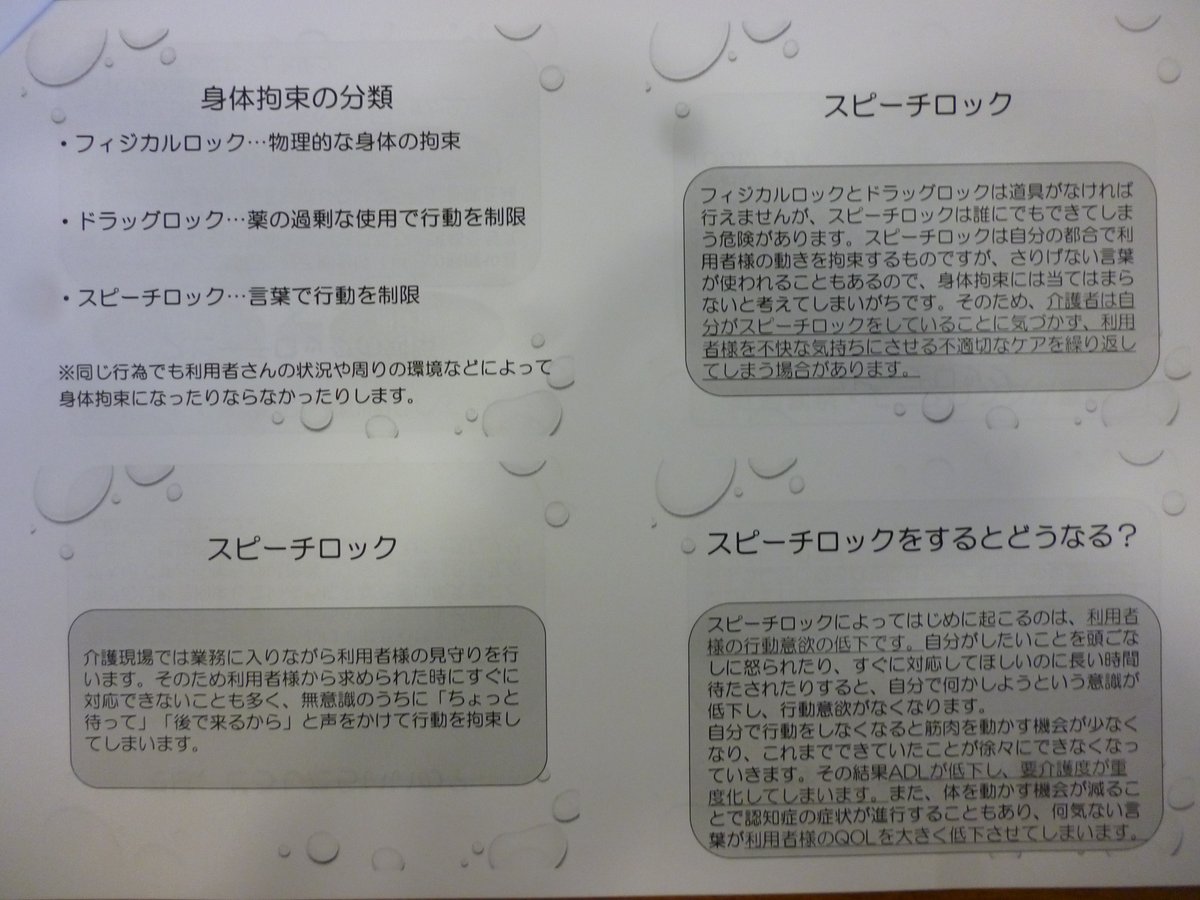 身体拘束の分類
・フィジカルロック…物理的な身体の拘束
・ドラッグロック…薬の過剰な使用で行動を制限
・スピーチロック…言葉で行動を制限
※同じ行為でも利用者さんの状況や周りの環境などによって
身体拘束になったりならなかったりします。
スピーチロック
フィジカルロックとドラッグロックは道具がなければ
行えませんが、スピーチロックは誰にでもできてしま
う危険があります。スピーチロックは自分の都合で利
用者様の動きを拘束するものですが、さりげない言葉
が使われることもあるので、身体拘束には当てはまら
ないと考えてしまいがちです。そのため、介護者は自
分がスピーチロックをしていることに気づかず、利用
者様を不快な気持ちにさせる不適切なケアを繰り返し
てしまう場合があります。
スピーチロック
介護現場では業務に入りながら利用者様の見守りを行
います。そのため利用者様から求められた時にすぐに
対応できないことも多く、無意識のうちに「ちょっと
待って」「後で来るから」と声をかけて行動を拘束し
てしまいます。
スピーチロックをするとどうなる？
スピーチロックによってはじめに起こるのは、利用者
様の行動意欲の低下です。自分がしたいことを頭ごな
しに怒られたり、すぐに対応してほしいのに長い時間
待たされたりすると、自分で何かしようという意識が
低下し、行動意欲がなくなります。
自分で行動をしなくなると筋肉を動かす機会が少なく
なり、これまでできていたことが徐々にできなくなっ
ていきます。その結果ADLが低下し、要介護度が重
度化してしまいます。また、体を動かす機会が減るこ
とで認知症の症状が進行することもあり、何気ない言
葉が利用者様のQOLを大きく低下させてしまいます。